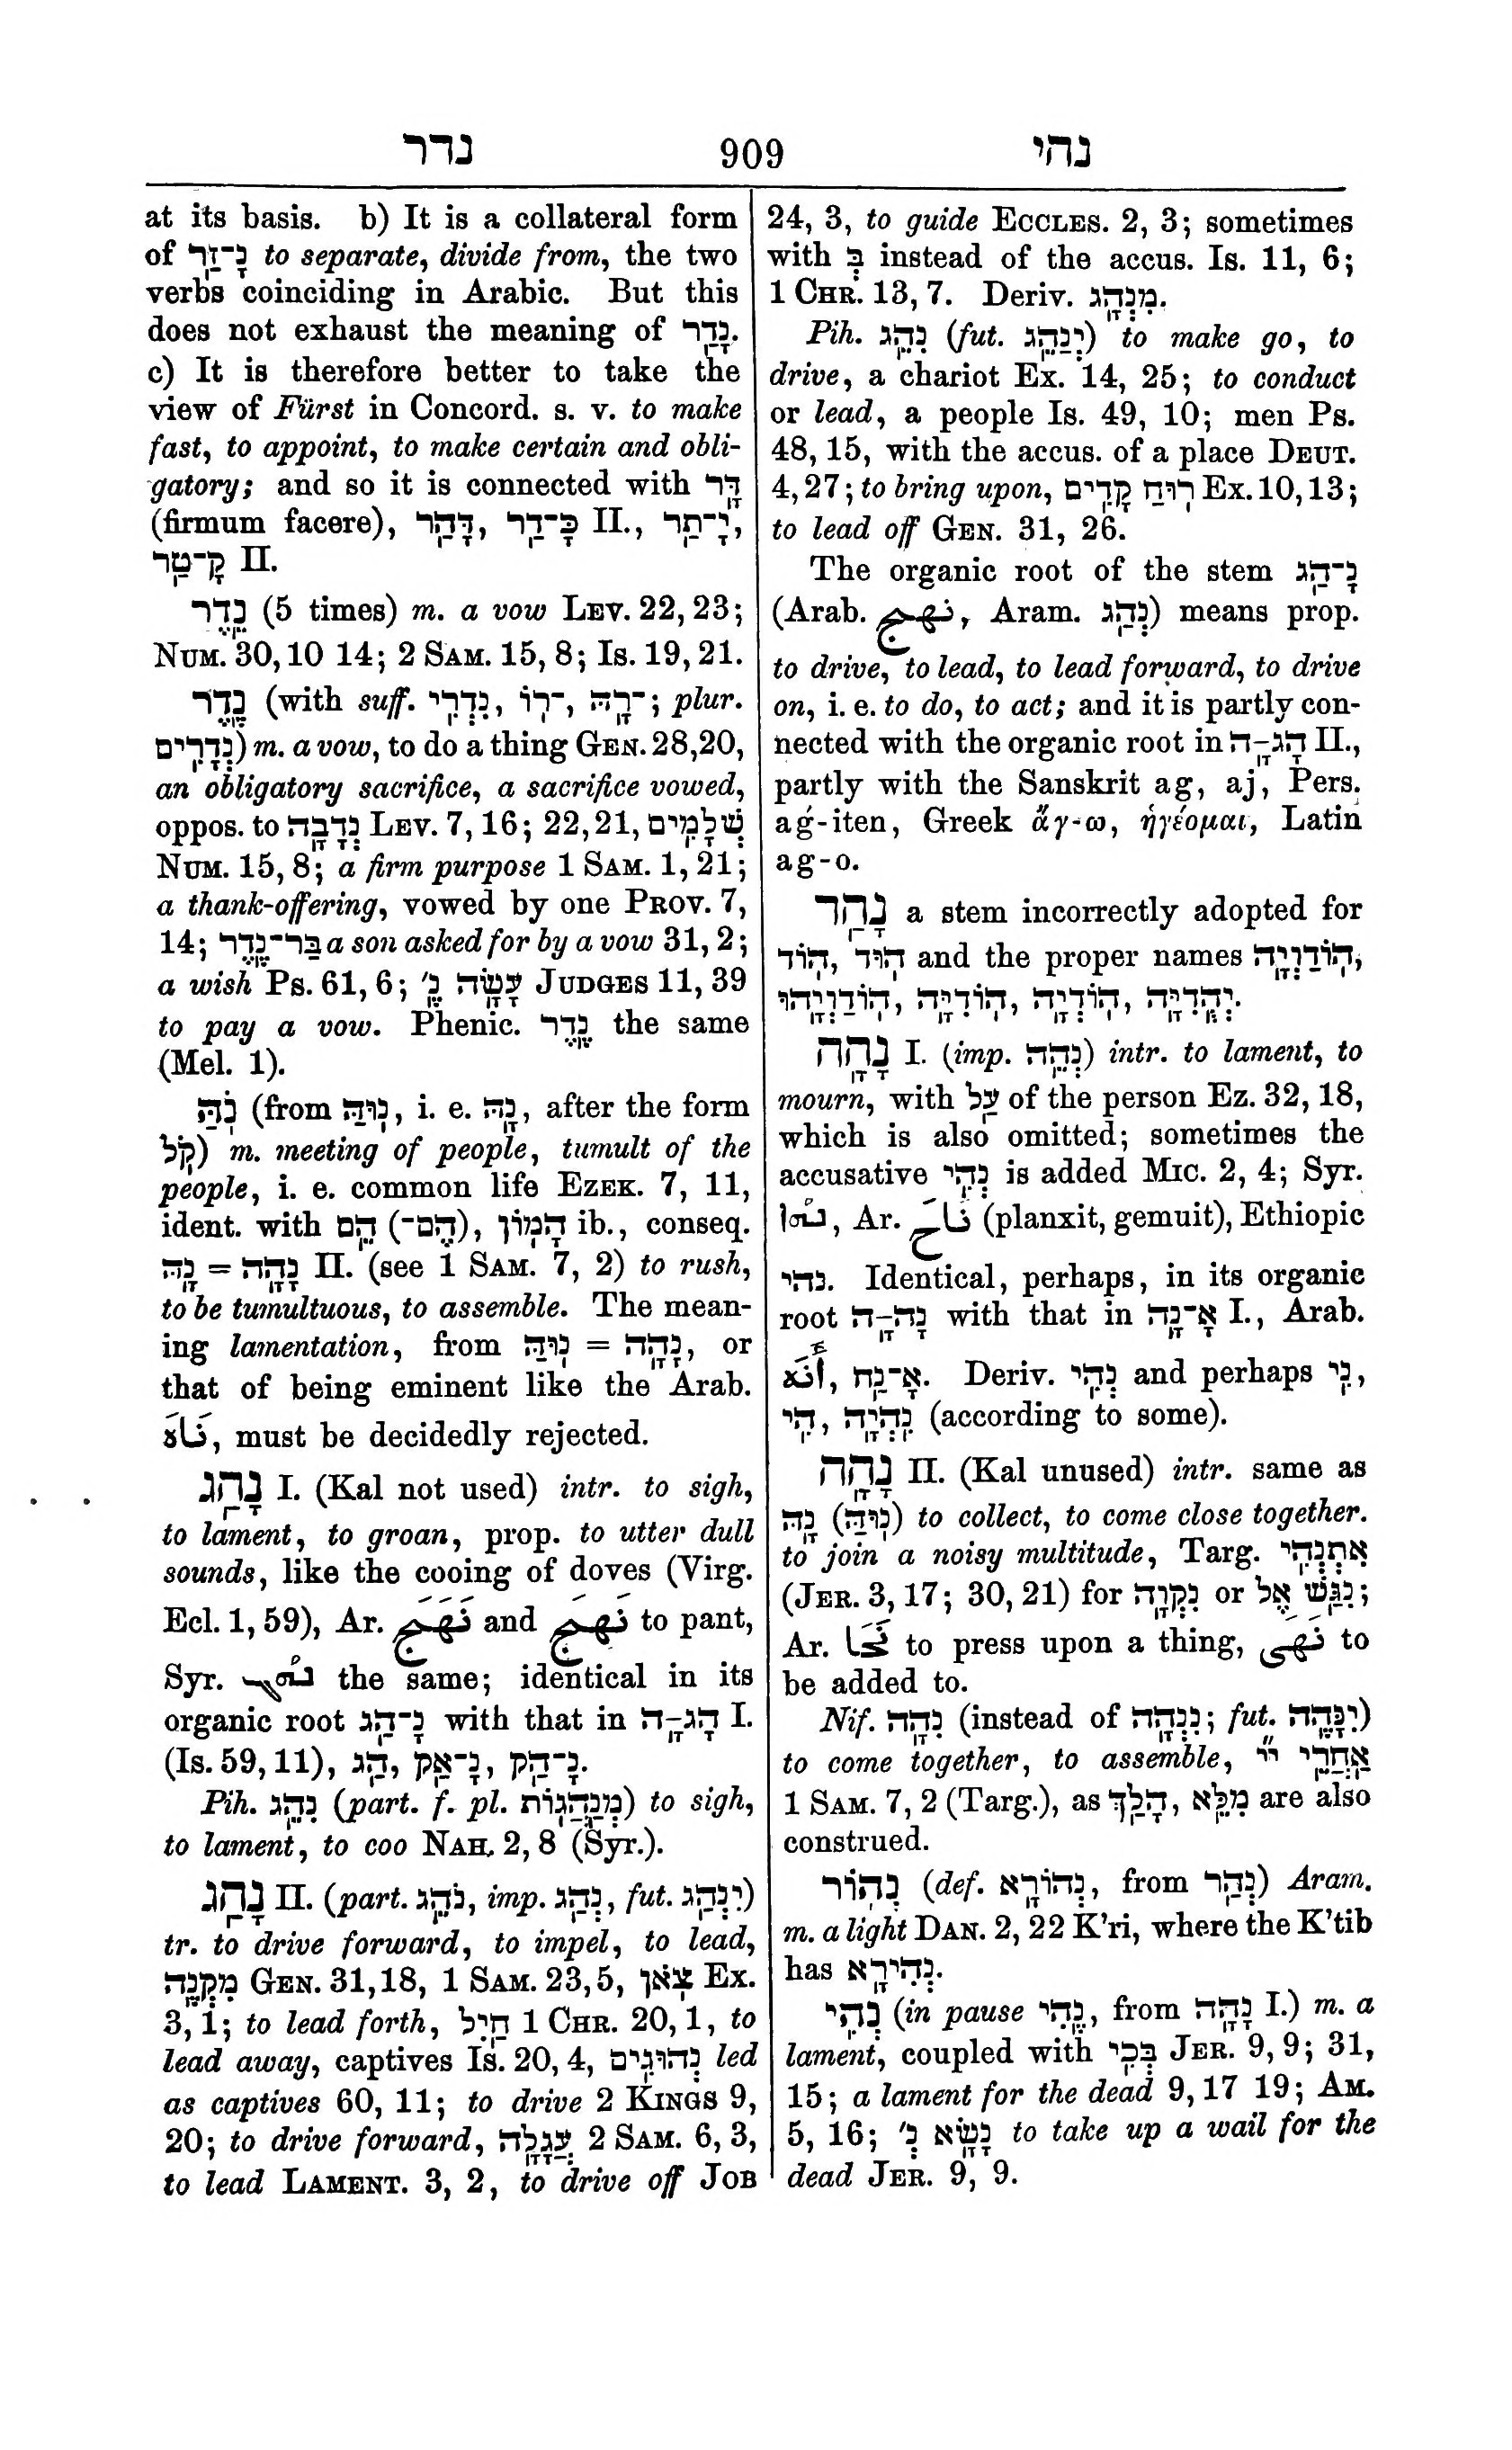 נדר 909 נהי
at its basis. b) It is a collateral form
of נָ־זַר to separate, divide from, the two
verbs coinciding in Arabic. But this
does not exhaust the meaning of נָדַר.
c) It is therefore better to take the
view of Fürst in Concord. s. v. to make
fast, to appoint, to make certain and obli-
gatory; and so it is connected with דָּר
(firmum facere), דָּהַר, כָּ־דַר II., יָ־תַר,
קָ־טַר II.
נֵדֶר (5 times) m. a vow Lev. 22, 23;
Num. 30, 10 14; 2 Sam. 15, 8; Is. 19, 21.
נֶדֶר (with suff. נִדְרִי, ־רוֹ, ־רָהּ; plur.
נְדָרִים) m. a vow, to do a thing Gen. 28, 20,
an obligatory sacrifice, a sacrifice vowed,
oppos. to נְדָבָה Lev. 7, 16; 22, 21, שְׁלָמִים
Num. 15, 8; a firm purpose 1 Sam. 1, 21;
a thank-offering, vowed by one Prov. 7,
14; בַּר־נֶדֶר a son asked for by a vow 31, 2;
a wish Ps. 61, 6; עָשָׂה נֶ׳ Judges 11, 39
to pay a vow. Phenic. נֶדֶר the same
(Mel. 1).
נֹהַּ (from נוּהַּ, i. e. נָהּ, after the form
קֹל) m. meeting of people, tumult of the
people, i. e. common life Ezek. 7, 11,
ident. with הֵם (הֶם־), הָמוֹן ib., conseq.
נָהּ = נָהָה II. (see 1 Sam. 7, 2) to rush,
to be tumultuous, to assemble. The mean-
ing lamentation, from נוּהַּ = נָהָה, or
that of being eminent like the Arab.
نَاهَ, must be decidedly rejected.
נָהַג I. (Kal not used) intr. to sigh,
to lament, to groan, prop. to utter dull
sounds, like the cooing of doves (Virg.
Ecl. 1, 59), Ar. نَهَجَ and نَهِجَ to pant,
Syr. the same; identical in its
organic root נָ־הַג with that in הָגָ־ה I.
(Is. 59, 11), הַג, נָ־אַק, נָ־הַק.
Pih. נִהֵג (part. f. pl. מְנַהֲגוֹת) to sigh,
to lament, to coo Nah. 2, 8 (Syr.).
נָהַג II. (part. נֹהֵג, imp. נְהַג, fut. יִנְהַג)
tr. to drive forward, to impel, to lead,
מִקְנֶה Gen. 31, 18, 1 Sam. 23, 5, צֹאן Ex.
3, 1; to lead forth, חַיִל 1 Chr. 20, 1, to
lead away, captives Is. 20, 4, נְהוּגִים led
as captives 60, 11; to drive 2 Kings 9,
20; to drive forward, עֲגָלָה 2 Sam. 6, 3,
to lead Lament. 3, 2, to drive off Job
24, 3, to guide Eccles. 2, 3; sometimes
with בְּ instead of the accus. Is. 11, 6;
1 Chr. 13, 7. Deriv. מִנְהָג.
Pih. נִהֵג (fut. יְנַהֵג) to make go, to
drive, a chariot Ex. 14, 25; to conduct
or lead, a people Is. 49, 10; men Ps.
48, 15, with the accus. of a place Deut.
4, 27; to bring upon, רוּחַ קָדִים Ex. 10, 13;
to lead off Gen. 31, 26.
The organic root of the stem נָ־הַג
(Arab. نهج, Aram. נְהַג) means prop.
to drive, to lead, to lead forward, to drive
on, i. e. to do, to act; and it is partly con-
nected with the organic root in הָגָ־ה II.,
partly with the Sanskrit ag, aj, Pers.
aǵ-iten, Greek ἄγ-ω, ἡγέομαι, Latin
ag-o.
נָהַר a stem incorrectly adopted for
הוֹד, הוּד and the proper names הוֹדַוְיָה,
הוֹדַוְיָהוּ, הוֹדִיָּה, הוֹדְיָה, יְהֻדִיָּה.
נָהָה I. (imp. נְהֵה) intr. to lament, to
mourn, with עַל of the person Ez. 32, 18,
which is also omitted; sometimes the
accusative נְהִי is added Mic. 2, 4; Syr.
, Ar. نَاحَ (planxit, gemuit), Ethiopic
נהי. Identical, perhaps, in its organic
root נָהָ־ה with that in אָ־נָה I., Arab.
, אָ־נַח. Deriv. נְהִי and perhaps נִי,
הִי, נִהְיָה (according to some).
נָהָה II. (Kal unused) intr. same as
נָהּ (נוּהַּ) to collect, to come close together.
to join a noisy multitude, Targ. אִתְנְהִי
(Jer. 3, 17; 30, 21) for נִקְוָה or נִגַּשׁ אֶל;
Ar. to press upon a thing, نَهَى to
be added to.
Nif. נִהָה (instead of נִנְהָה; fut. יִנָּהֶה)
to come together, to assemble, אַחֲרֵי יי״
1 Sam. 7, 2 (Targ.), as הָלַךְ, מִלֵּא are also
construed.
נְהוֹר (def. נְהוֹרָא, from נְהַר) Aram.
m. a light Dan. 2, 22 K'ri, where the K'tib
has נְהִירָא.
נְהִי (in pause נֶהִי, from נָהָה I.) m. a
lament, coupled with בְּכִי Jer. 9, 9; 31,
15; a lament for the dead 9, 17 19; Am.
5, 16; נָשָׂא נְ׳ to take up a wail for the
dead Jer. 9, 9.